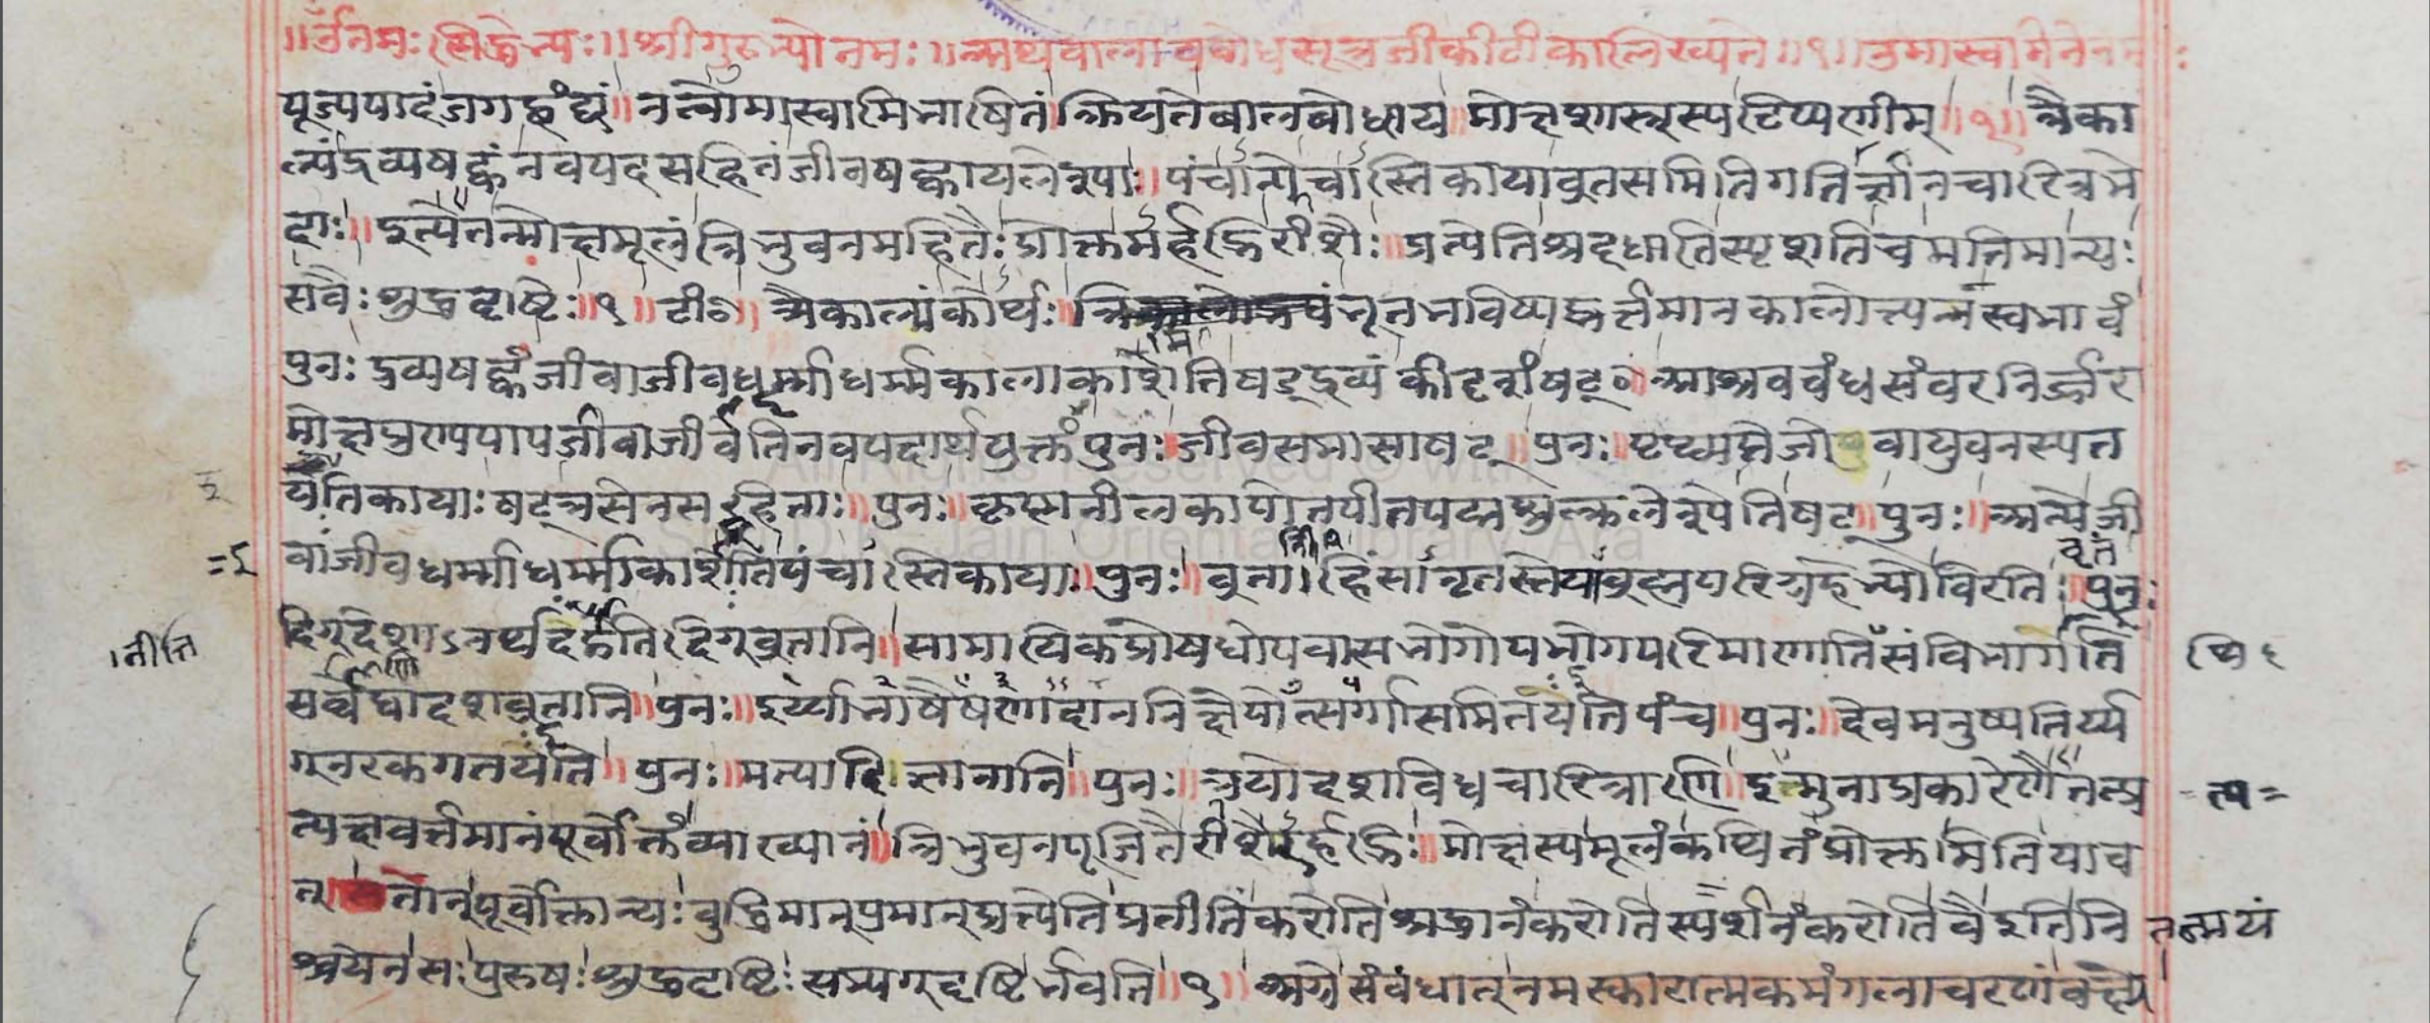 ॥ॐनमः सिद्धेभ्यः॥श्रीगुरुभ्योनमः॥अथबालाववोधसूत्रजीकीटीकालिख्यते॥१॥उमास्वामिनेनमः
पूज्यपादंजगद्वंद्यं॥नत्वोमास्वामिभाषितंक्रियतेबालबोधाय॥मोक्षशास्त्रस्यटिप्पणीम्॥१॥त्रैका
ल्यंद्रव्यषट्कंनवपदसहितंजीवषट्कायलेश्याः॥पंचान्येचास्तिकायाव्रतसमितिगतिर्ज्ञानचारित्रभे
दाः॥इत्येतन्मोक्षमूलंत्रिभुवनमहितैःप्रोक्तमर्हद्भिरीशैः॥प्रत्येतिश्रद्दधातिस्पृशतिचमतिमान्यः
सवैःशुद्धदृष्टिः॥१॥टीका॥त्रैकाल्यंकोर्थः॥भूतभविष्यद्वर्त्तमानकालोत्पन्नंस्वभावं
पुनःद्रव्यषट्कंजीवाजीवधर्म्माधर्म्मकालाकाशेतिषड्द्रव्यंकीदृशंषट्०॥आश्रवबंधसंवरनिर्ज्जर
मोक्षपुण्यपापजीवाजीवेतिनवपदार्थयुक्तंपुनः॥जीवसमासाषट्॥पुनः॥पृथ्व्यप्तेजोवायुवनस्पत
येतिकायाःषट्त्रसेनसहिताः॥पुनः॥कृष्णनीलकापोतपीतपद्मशुक्ललेश्येतिषट्॥पुनः॥अन्येजी
वाजीवधर्म्माधर्म्माकाशेतिपंचास्तिकायाः॥पुनः॥व्रता।हिंसानृतस्तेयाब्रह्मपरिग्रहेभ्योविरतिः॥व्रतं पुनः
दिग्देशाऽनर्थदंडेतिदिग्व्रतानि॥सामायिकप्रोषधोपवासभोगोपभोगपरिमाणातिसंविभागेति
सर्वेद्वादशव्रतानि॥पुनः॥इर्य्याभाषैषणादाननिक्षेपोत्सर्गासमितयेतिपंच॥पुनः॥देवमनुष्यतिर्य्य
ग्नरकगतयेति॥पुनः॥मत्यादिज्ञानानि॥पुनः॥त्रयोदशविधचारित्राणि॥इत्मुनाप्रकारेणैतत्प्र
त्यक्षवर्त्तमानंपूर्वोक्तंव्याख्यानं॥त्रिभुवनपूजितैरीशैरर्हद्भिः॥मोक्षस्यमूलंकथितंप्रोक्तमितियाव
त् तान्पूर्वोक्तान्यःबुद्धिमान्पुमान्प्रत्येतिप्रतीतिंकरोतिश्रद्धानंकरोतिस्पर्शनंकरोतिवैइतिनि तन्मयं
श्चयेनसःपुरुषःशुद्धदृष्टिःसम्यग्दृष्टिर्भवति॥१॥अग्रेसंबंधात्नमस्कारात्मकमंगलाचरणंवक्ष्ये